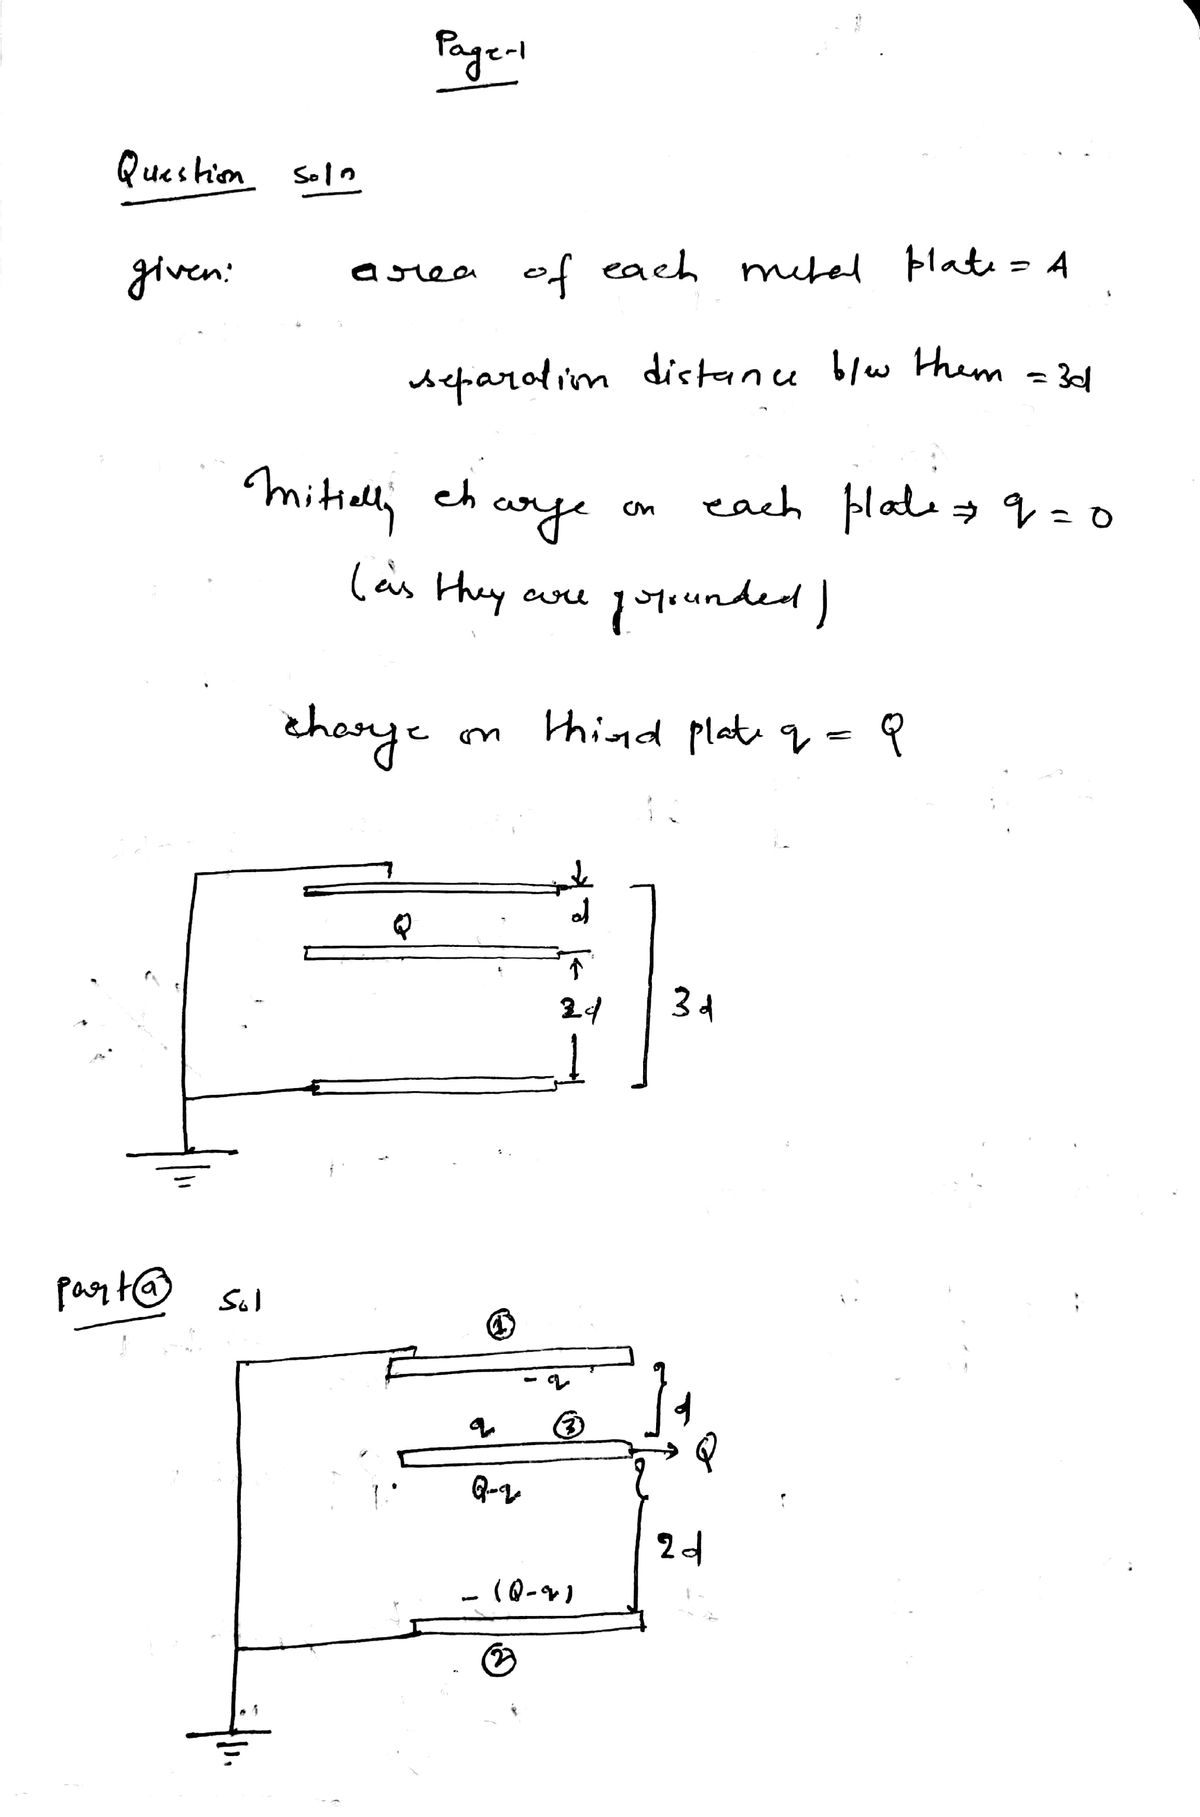 Page-1
Question soln
given: area of each metal plate = A
separation distance b/w them = 3d
Initially charge on each plate ⇒ q = 0
(as they are grounded)
charge on third plate q = Q
d
Q
2d
3d
Part ⓐ Sol
①
-q
d
q
③
Q
Q-q
2d
- (Q-q)
②